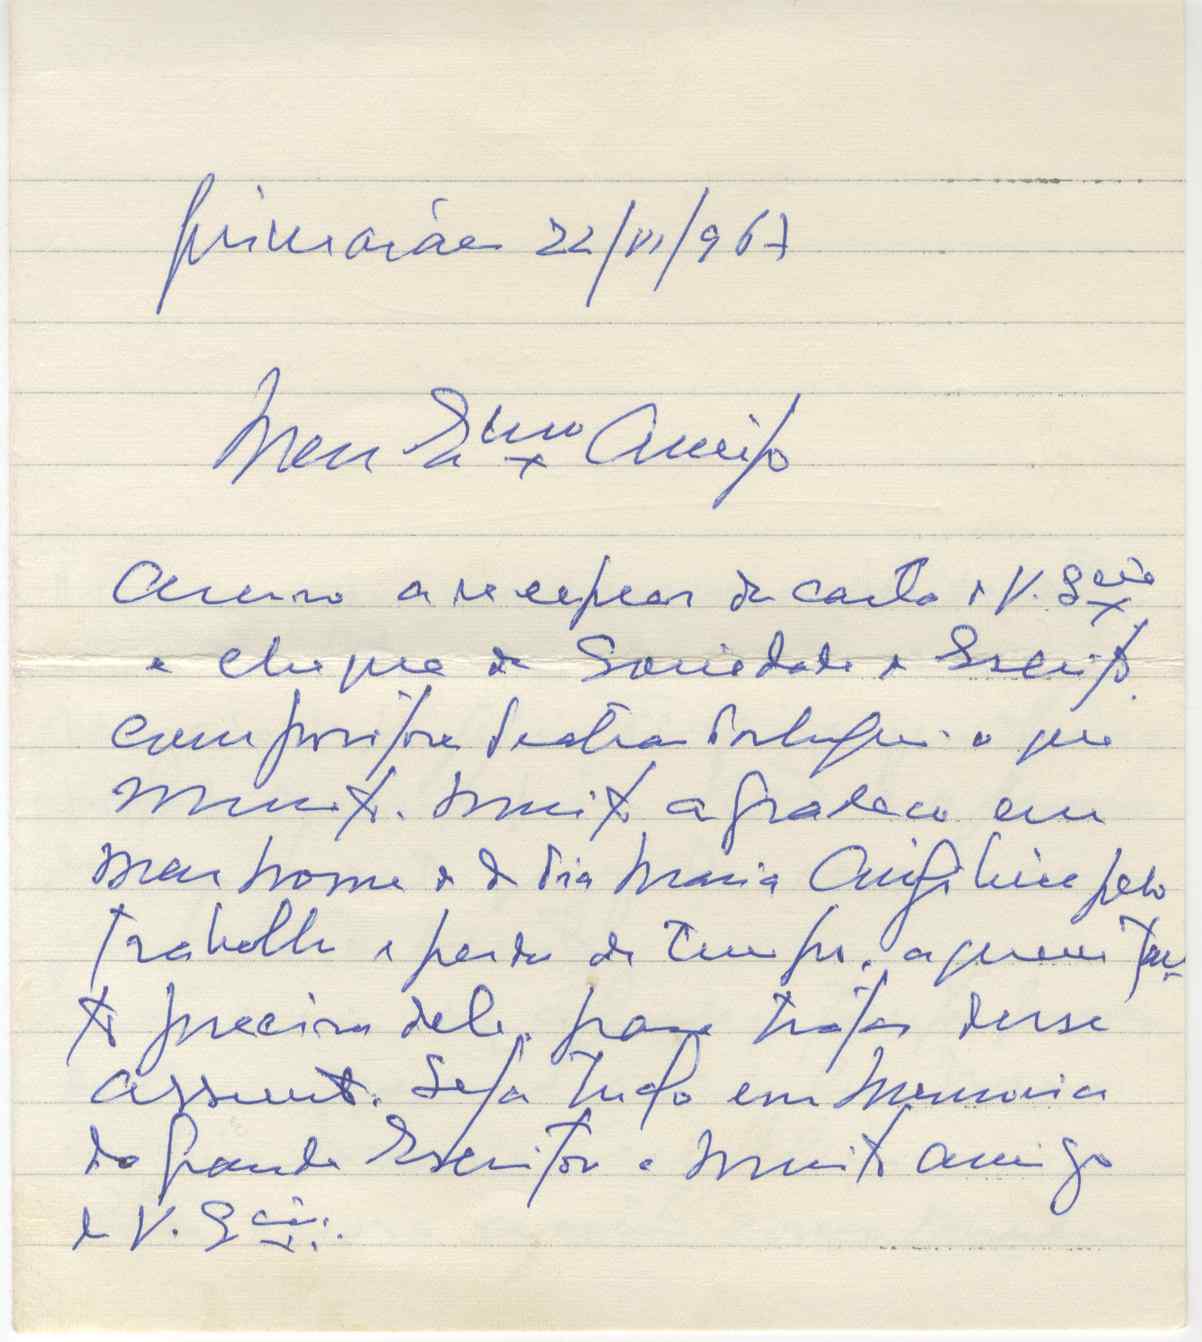 Guimarães 22/VI/967
Meu Exmo Amigo
Acuso a recepção da carta de V. Excia
e cheque da Sociedade de Escrit.
compositores Teatrais Portugueses o que
muito. muito agradeço em
meu nome e da Tia Maria pelo
trabalho e perda de Tempo. a quem Tan-
to precisa dele. para tratar desse
assunto. Seja tudo em Memoria
do grande Escritor e muito amigo
de V. Excia.